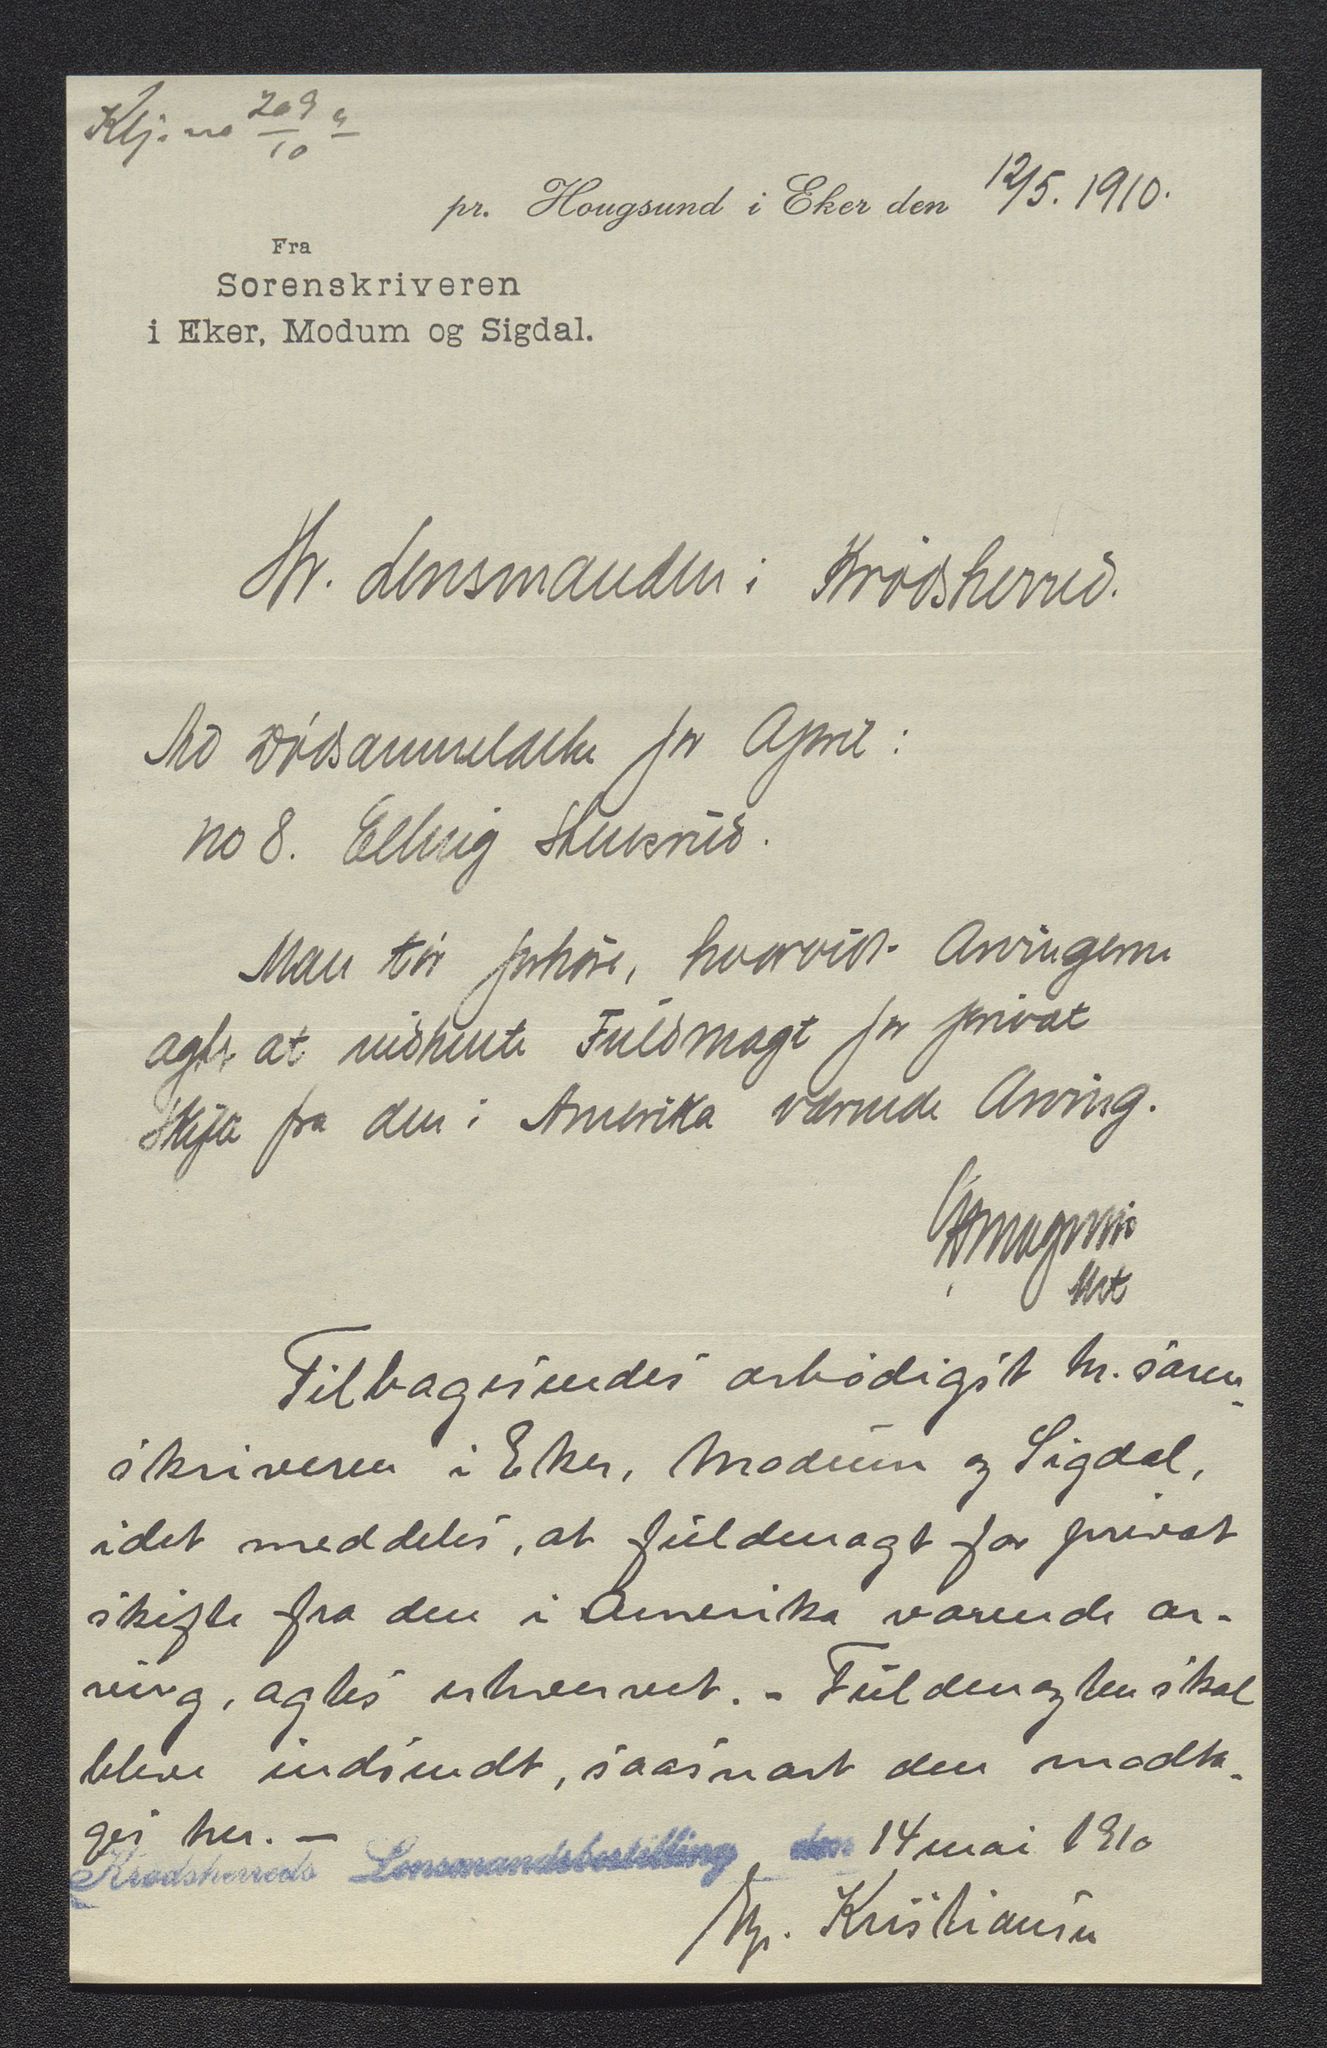 Kbj. no 209/10
pr. Hougsund i Eker den 12/5. 1910.
Fra
Sorenskriveren
i Eker, Modum og Sigdal.
Hr. Lensmanden i Krødsherred.
Ad Dødsanmeldelse for April:
no 8. Ellevig
Man tør forhøre, hvorvidt Arvingerne
agter at indhente Fuldmagt for privat
Skifte fra den i Amerika værende Arving.
Tilbagesendes ærbødigst hr. soren-
skriveren i Eker, Modum og Sigdal,
idet meddeles, at fuldmagt for privat
skifte fra den i Amerika værende ar-
ving, agtes erhvervet. - Fuldmagten skal
blive indsendt, saasnart den modta-
ges her. -
Krødsherreds Lensmandsbestilling den 14 mai 1910
Kristiansen